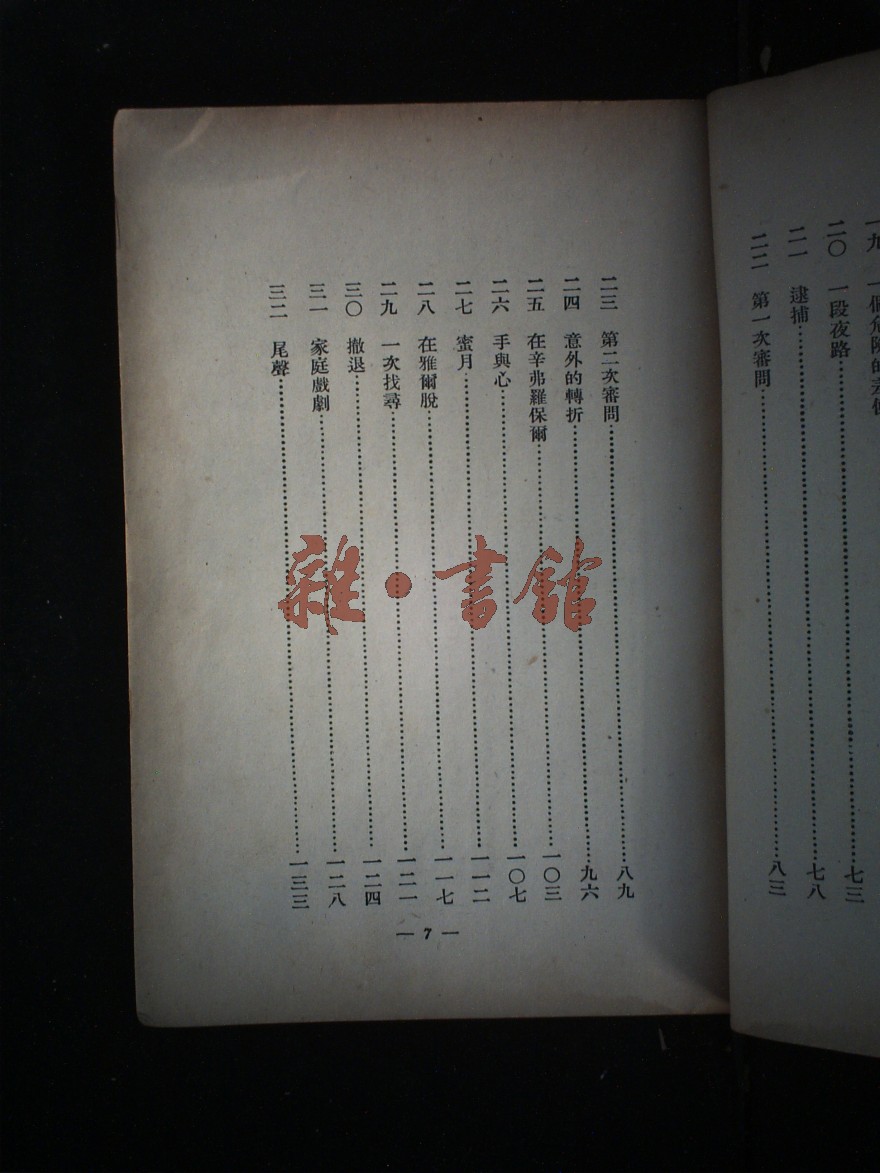 一九 一個危險的差使
二〇 一段夜路…………七三
二一 逮捕…………七八
二二 第一次審問…………八三
二三 第二次審問…………八九
二四 意外的轉折…………九六
二五 在辛弗羅保爾…………一〇三
二六 手與心…………一〇七
二七 蜜月…………一一二
二八 在雅爾脫…………一一七
二九 一次找尋…………一二一
三〇 撤退…………一二四
三一 家庭戲劇…………一二八
三二 尾聲…………一三三
— 7 —
雜·書館